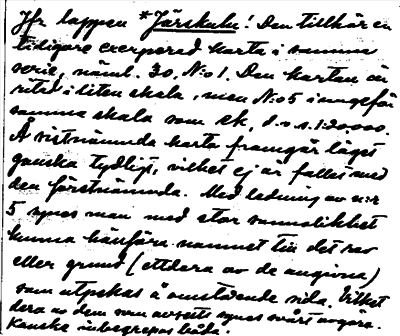 Jfr lappen *Järskulu! Den tillhör en
tidigare excerperad karta i samma
serie, näml. 30, N:o 1. Den kartan är
ritad i liten skala, men N:o 5 i ungefär
samma skala som ek, d.v.s. 1:20000.
Å sistnämnda karta framgår läget
ganska tydligt, vilket ej är fallet med
den förstnämnda. Med ledning av n:r
5 synes man med stor sannolikhet
kunna hänföra namnet till det rev
eller grund (ettdera av de angivna)
som utpekas å omstående sida. Vilket
dera av dem som avsetts synes svårt avgöra.
Kanske inbegrepos båda.